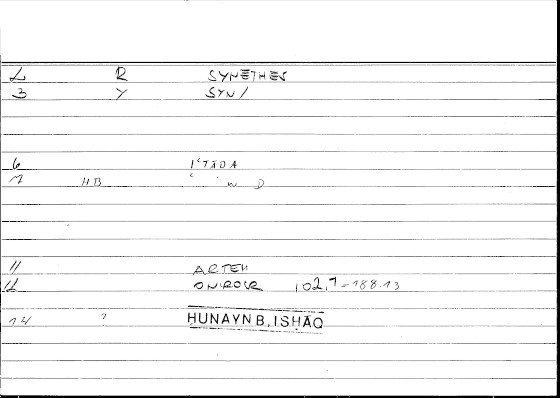 2 R SYNETHES
3 Y SYN/
6 IʿTĀDA
7 HB ʿ W D
11 ARTEM
12 ONIROCR 102,7-188.13
14 ? HUNAYN B. ISHĀQ